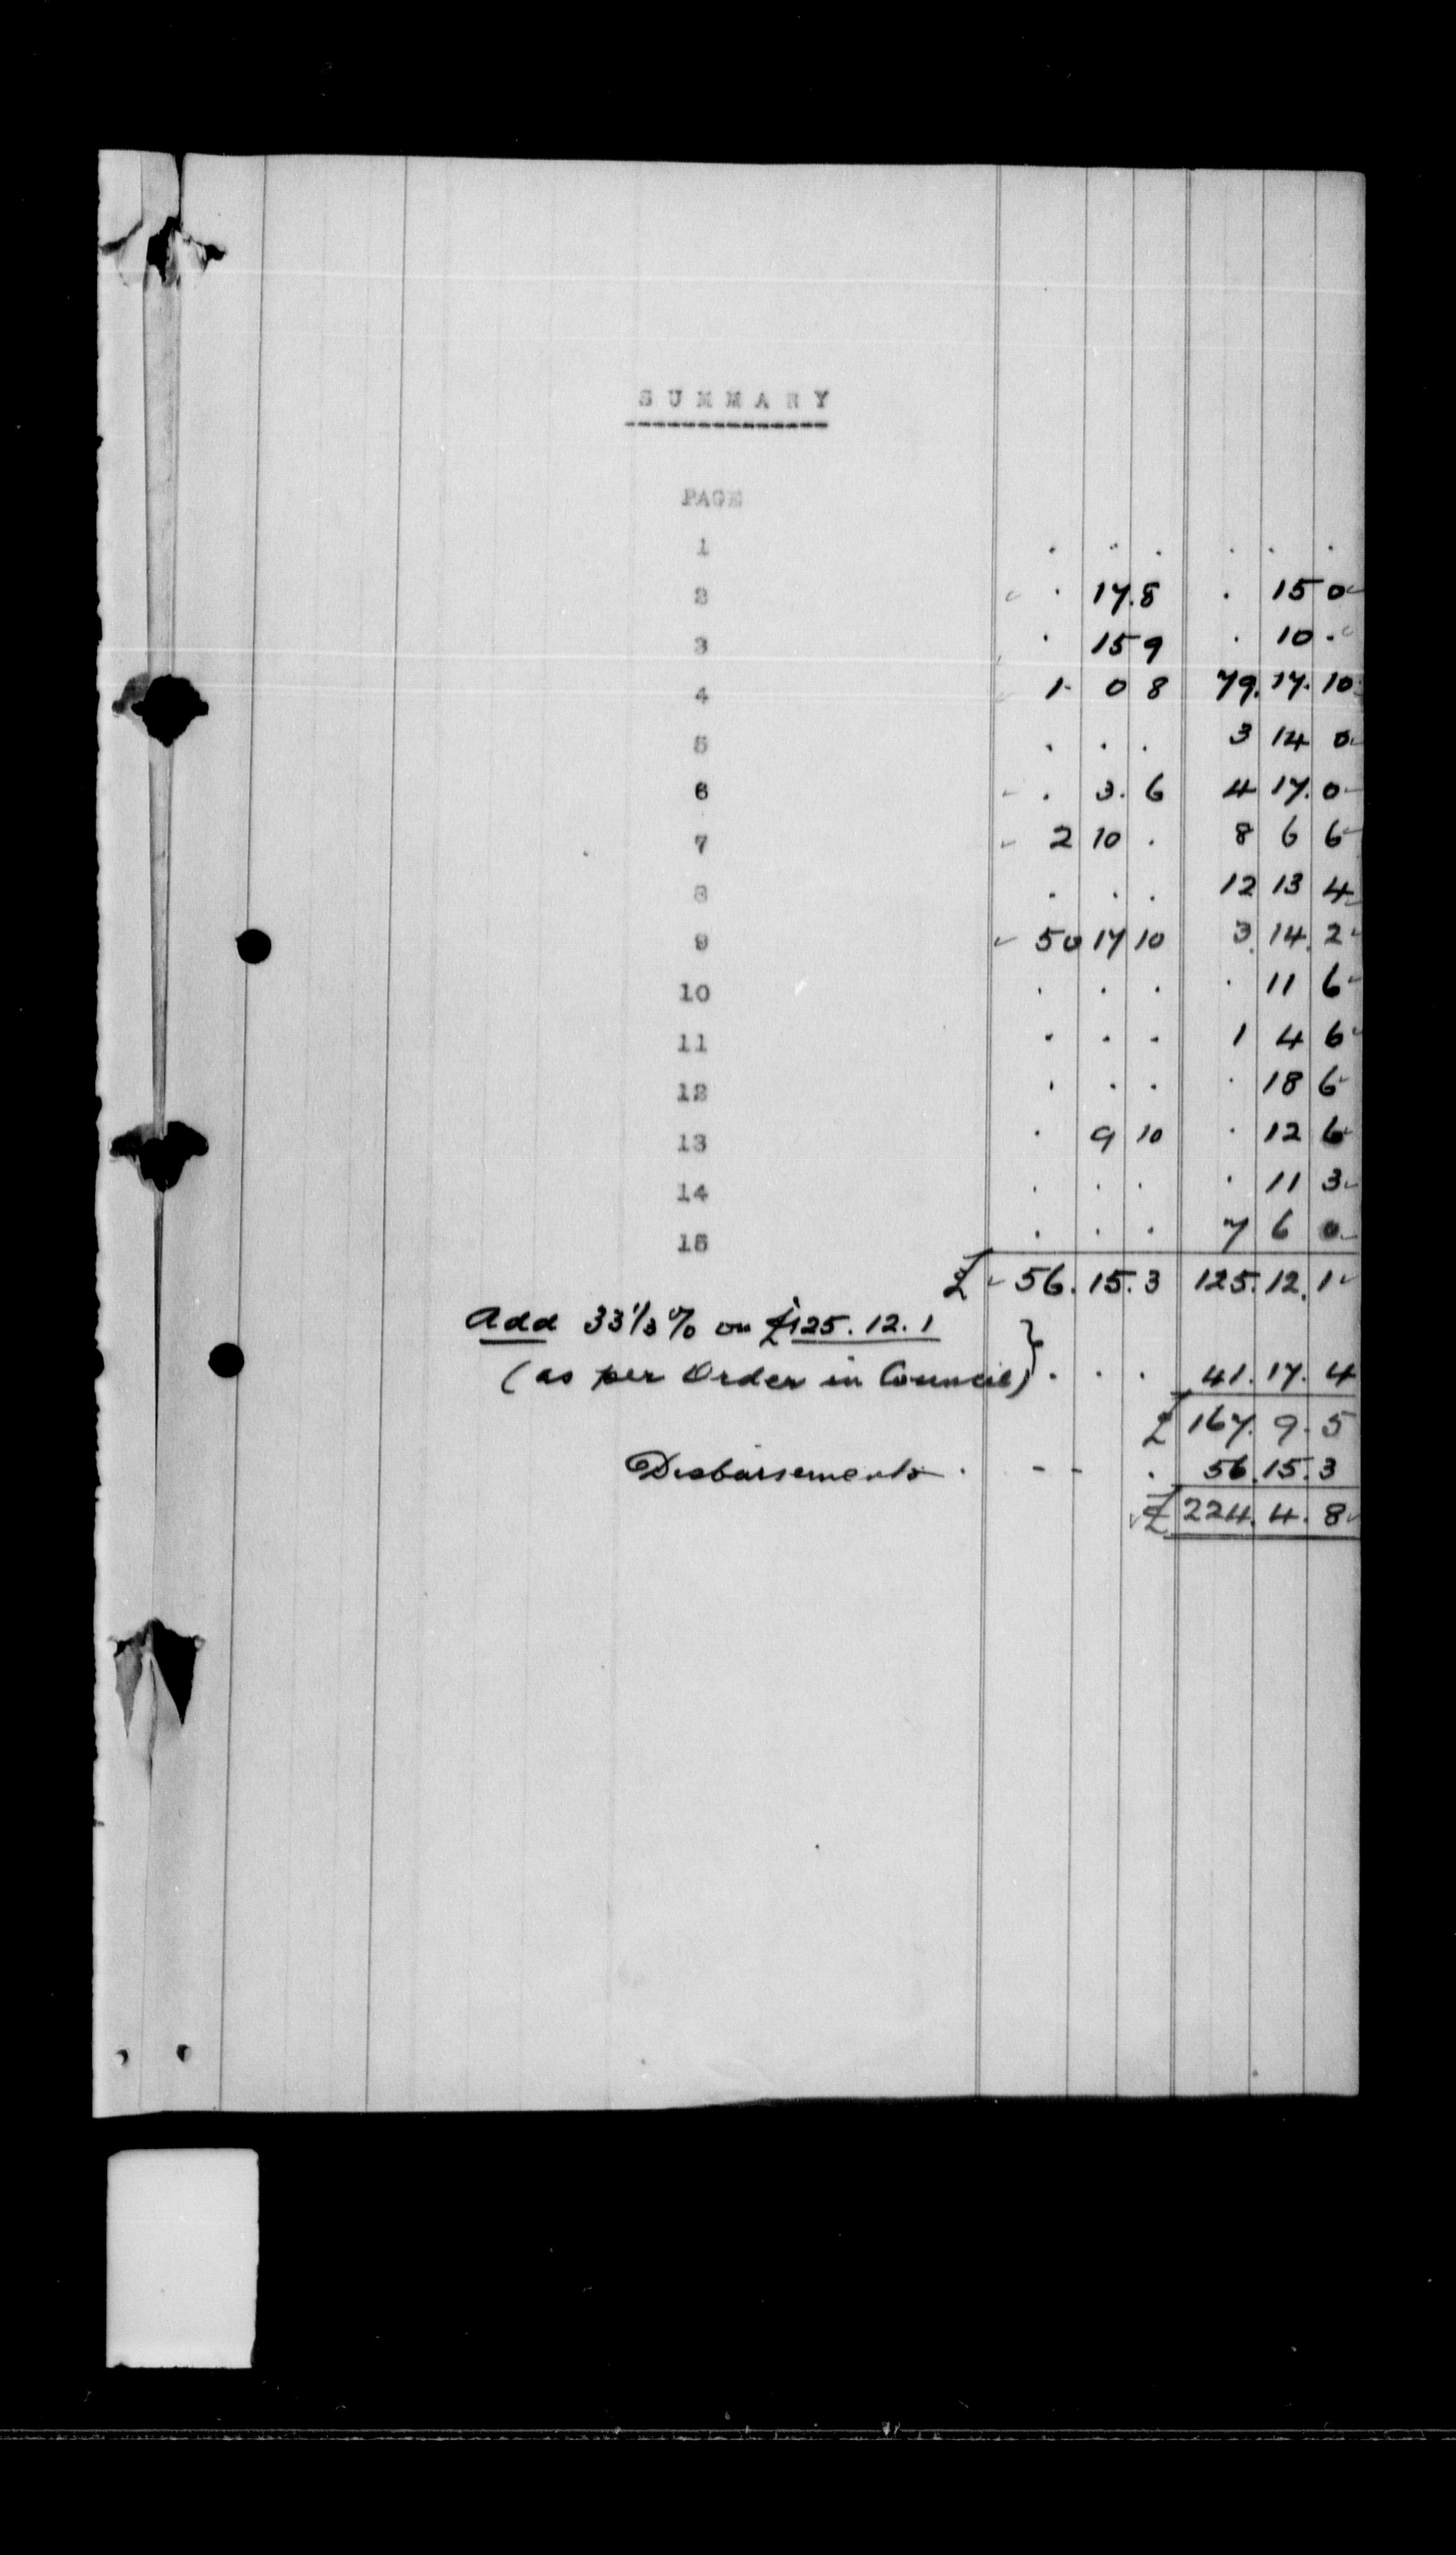 SUMMARY
PAGE
1 . . . . . .
2 . 17.8 . 15 0
3 . 15 9 . 10 .
4 1 0 8 79.17.10
5 . . . 3 14 0
6 . 3.6 4 17.0
7 2 10 . 8 6 6
8 . . . 12 13 4
9 50 17 10 3.14.2
10 . . . . 11 6
11 . . . 1 4 6
12 . . . . 18 6
13 . 9 10 . 12 6
14 . . . . 11 3
15 . . . 7 6 0
£ 56.15.3 125.12.1
Add 33⅓% on £125.12.1
(as per Order in Council) } . . . 41.17.4
£ 167.9.5
Disbursements . - - . 56.15.3
£ 224.4.8